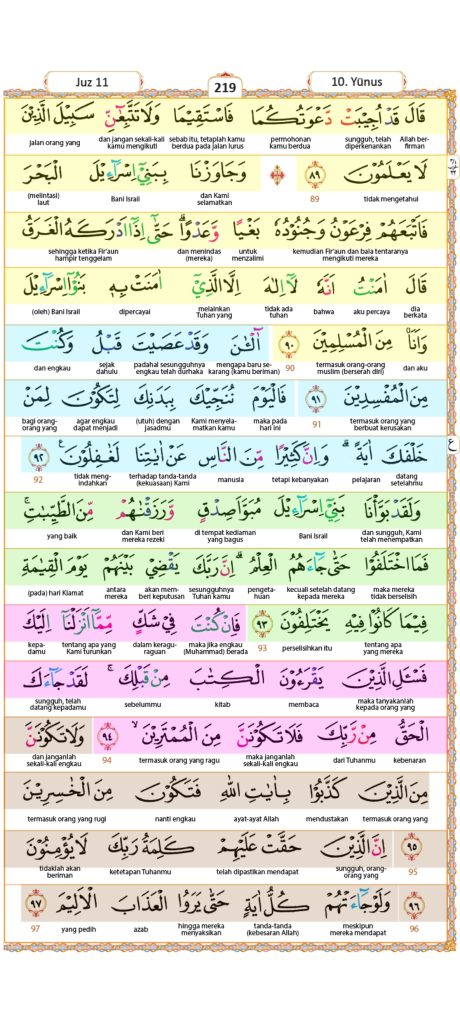 Juz 11
219
10. Yūnus
قَالَ قَدْ اُجِيْبَتْ دَّعْوَتُكُمَا فَاسْتَقِيْمَا وَلَا تَتَّبِعٰۤنِّ سَبِيْلَ الَّذِيْنَ
Allah ber-firman sungguh, telah diperkenankan permohonan kamu berdua sebab itu, tetaplah kamu berdua pada jalan lurus dan jangan sekali-kali kamu mengikuti jalan orang yang
لَا يَعْلَمُوْنَ ۝٨٩ وَجَاوَزْنَا بِبَنِيْٓ اِسْرَاۤءِيْلَ الْبَحْرَ
tidak mengetahui 89 dan Kami selamatkan Bani Israil (melintasi) laut
فَاَتْبَعَهُمْ فِرْعَوْنُ وَجُنُوْدُهٗ بَغْيًا وَّعَدْوًاۗ حَتّٰىٓ اِذَآ اَدْرَكَهُ الْغَرَقُ
kemudian Fir'aun dan bala tentaranya mengikuti mereka untuk menzalimi dan menindas (mereka) sehingga ketika Fir'aun hampir tenggelam
قَالَ اٰمَنْتُ اَنَّهٗ لَآ اِلٰهَ اِلَّا الَّذِيْٓ اٰمَنَتْ بِهٖ بَنُوْٓا اِسْرَاۤءِيْلَ
dia berkata aku percaya bahwa tidak ada tuhan melainkan Tuhan yang dipercayai (oleh) Bani Israil
وَاَنَا۠ مِنَ الْمُسْلِمِيْنَ ۝٩٠ اٰۤلْـٰٔنَ وَقَدْ عَصَيْتَ قَبْلُ وَكُنْتَ
dan aku termasuk orang-orang muslim (berserah diri) 90 mengapa baru se-karang (kamu beriman) padahal sesungguhnya engkau telah durhaka sejak dahulu dan engkau
مِنَ الْمُفْسِدِيْنَ ۝٩١ فَالْيَوْمَ نُنَجِّيْكَ بِبَدَنِكَ لِتَكُوْنَ لِمَنْ
termasuk orang yang berbuat kerusakan 91 maka pada hari ini Kami menyela-matkan kamu (utuh) dengan jasadmu agar engkau dapat menjadi bagi orang-orang yang
خَلْفَكَ اٰيَةً ۗوَاِنَّ كَثِيْرًا مِّنَ النَّاسِ عَنْ اٰيٰتِنَا لَغٰفِلُوْنَ ۝٩٢ ع
datang setelahmu pelajaran tetapi kebanyakan manusia terhadap tanda-tanda (kekuasaan) Kami tidak meng-indahkan 92
وَلَقَدْ بَوَّأْنَا بَنِيْٓ اِسْرَاۤءِيْلَ مُبَوَّاَ صِدْقٍ وَّرَزَقْنٰهُمْ مِّنَ الطَّيِّبٰتِ ۚ
dan sungguh, Kami telah menempatkan Bani Israil di tempat kediaman yang bagus dan Kami beri mereka rezeki yang baik
فَمَا اخْتَلَفُوْا حَتّٰى جَاۤءَهُمُ الْعِلْمُ ۗاِنَّ رَبَّكَ يَقْضِيْ بَيْنَهُمْ يَوْمَ الْقِيٰمَةِ
maka mereka tidak berselisih kecuali setelah datang kepada mereka pengeta-huan sesungguhnya Tuhan kamu akan mem-beri keputusan antara mereka (pada) hari Kiamat
فِيْمَا كَانُوْا فِيْهِ يَخْتَلِفُوْنَ ۝٩٣ فَاِنْ كُنْتَ فِيْ شَكٍّ مِّمَّآ اَنْزَلْنَآ اِلَيْكَ
tentang apa yang mereka perselisihkan itu 93 maka jika engkau (Muhammad) berada dalam keragu-raguan tentang apa yang Kami turunkan kepa-damu
فَسْـَٔلِ الَّذِيْنَ يَقْرَءُوْنَ الْكِتٰبَ مِنْ قَبْلِكَ ۚ لَقَدْ جَاۤءَكَ
maka tanyakanlah kepada orang yang membaca kitab sebelummu sungguh, telah datang kepadamu
الْحَقُّ مِنْ رَّبِّكَ فَلَا تَكُوْنَنَّ مِنَ الْمُمْتَرِيْنَ ۙ ۝٩٤ وَلَا تَكُوْنَنَّ
kebenaran dari Tuhanmu maka janganlah sekali-kali engkau termasuk orang yang ragu 94 dan janganlah sekali-kali engkau
مِنَ الَّذِيْنَ كَذَّبُوْا بِاٰيٰتِ اللّٰهِ فَتَكُوْنَ مِنَ الْخٰسِرِيْنَ
termasuk orang yang mendustakan ayat-ayat Allah nanti engkau termasuk orang yang rugi
۝٩٥ اِنَّ الَّذِيْنَ حَقَّتْ عَلَيْهِمْ كَلِمَتُ رَبِّكَ لَا يُؤْمِنُوْنَ
95 sungguh, orang-orang yang telah dipastikan mendapat ketetapan Tuhanmu tidaklah akan beriman
۝٩٦ وَلَوْ جَاۤءَتْهُمْ كُلُّ اٰيَةٍ حَتّٰى يَرَوُا الْعَذَابَ الْاَلِيْمَ ۝٩٧
96 meskipun mereka mendapat tanda-tanda (kebesaran Allah) hingga mereka menyaksikan azab yang pedih 97